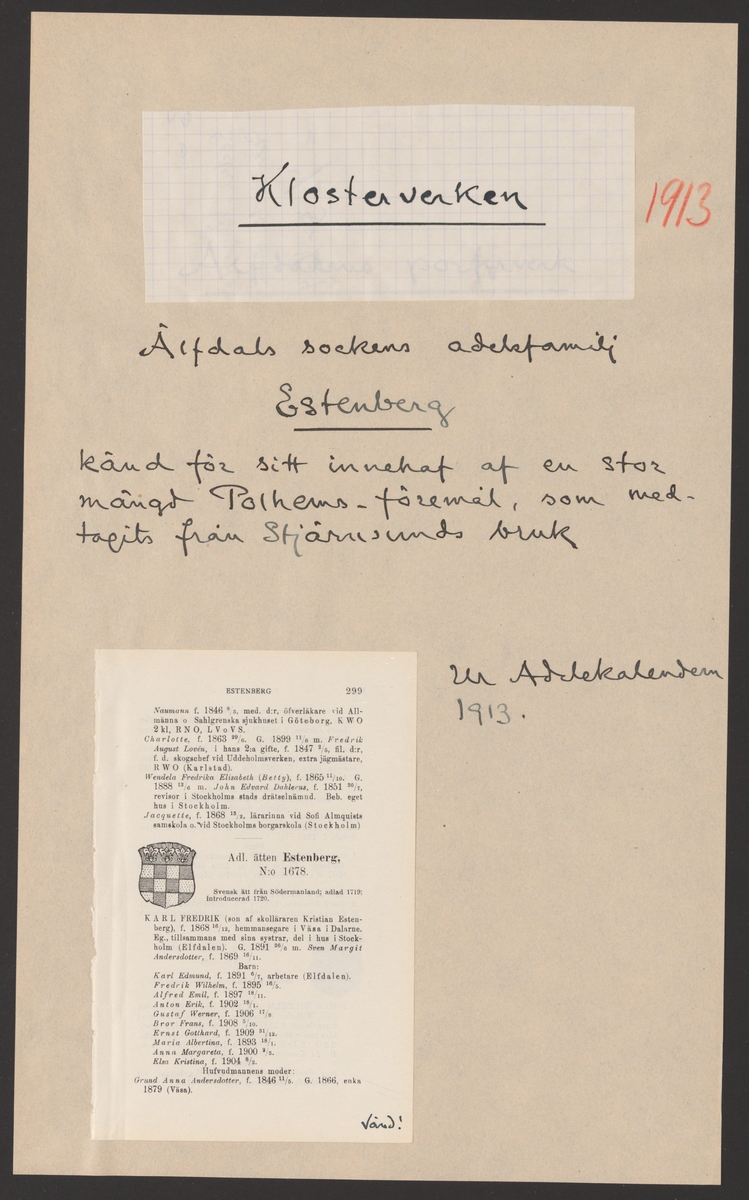 Klosterverken
1913
Älfdals sockens adelsfamilj
Estenberg
känd för sitt innehaf af en stor
mängd Polhems-föremål, som med-
tagits från Stjärnsunds bruk
Ur Adelskalendern
1913.
ESTENBERG 299
Naumann f. 1846 6/2, med. d:r, öfverläkare vid All-
männa o Sahlgrenska sjukhuset i Göteborg, KWO
2 kl, RNO, LVoVS.
Charlotte, f. 1863 29/6. G. 1899 11/6 m. Fredrik
August Lovén, i hans 2:a gifte, f. 1847 2/5, fil. d:r,
f. d. skogschef vid Uddeholmsverken, extra jägmästare,
RWO (Karlstad).
Wendela Fredrika Elisabeth (Betty), f. 1865 11/10. G.
1888 15/6 m. John Edvard Dahlerus, f. 1851 30/7,
revisor i Stockholms stads drätselnämnd. Beb. eget
hus i Stockholm.
Jacquette, f. 1868 15/2, lärarinna vid Sofi Almquists
samskola o. vid Stockholms borgarskola (Stockholm)
Adl. ätten Estenberg,
N:o 1678.
Svensk ätt från Södermanland; adlad 1719;
introducerad 1720.
KARL FREDRIK (son af skolläraren Kristian Esten-
berg), f. 1868 16/12, hemmansegare i Väsa i Dalarne.
Eg., tillsammans med sina systrar, del i hus i Stock-
holm (Elfdalen). G. 1891 26/6 m. Sven Margit
Andersdotter, f. 1869 16/11.
Barn:
Karl Edmund, f. 1891 6/7, arbetare (Elfdalen).
Fredrik Wilhelm, f. 1895 16/5.
Alfred Emil, f. 1897 18/11.
Anton Erik, f. 1902 18/1.
Gustaf Werner, f. 1906 17/6
Bror Frans, f. 1908 5/10.
Ernst Gotthard, f. 1909 21/12.
Maria Albertina, f. 1893 18/1.
Anna Margareta, f. 1900 9/3.
Elsa Kristina, f. 1904 8/2.
Hufvudmannens moder:
Grund Anna Andersdotter, f. 1846 11/5. G. 1866, enka
1879 (Väsa).
Vänd!